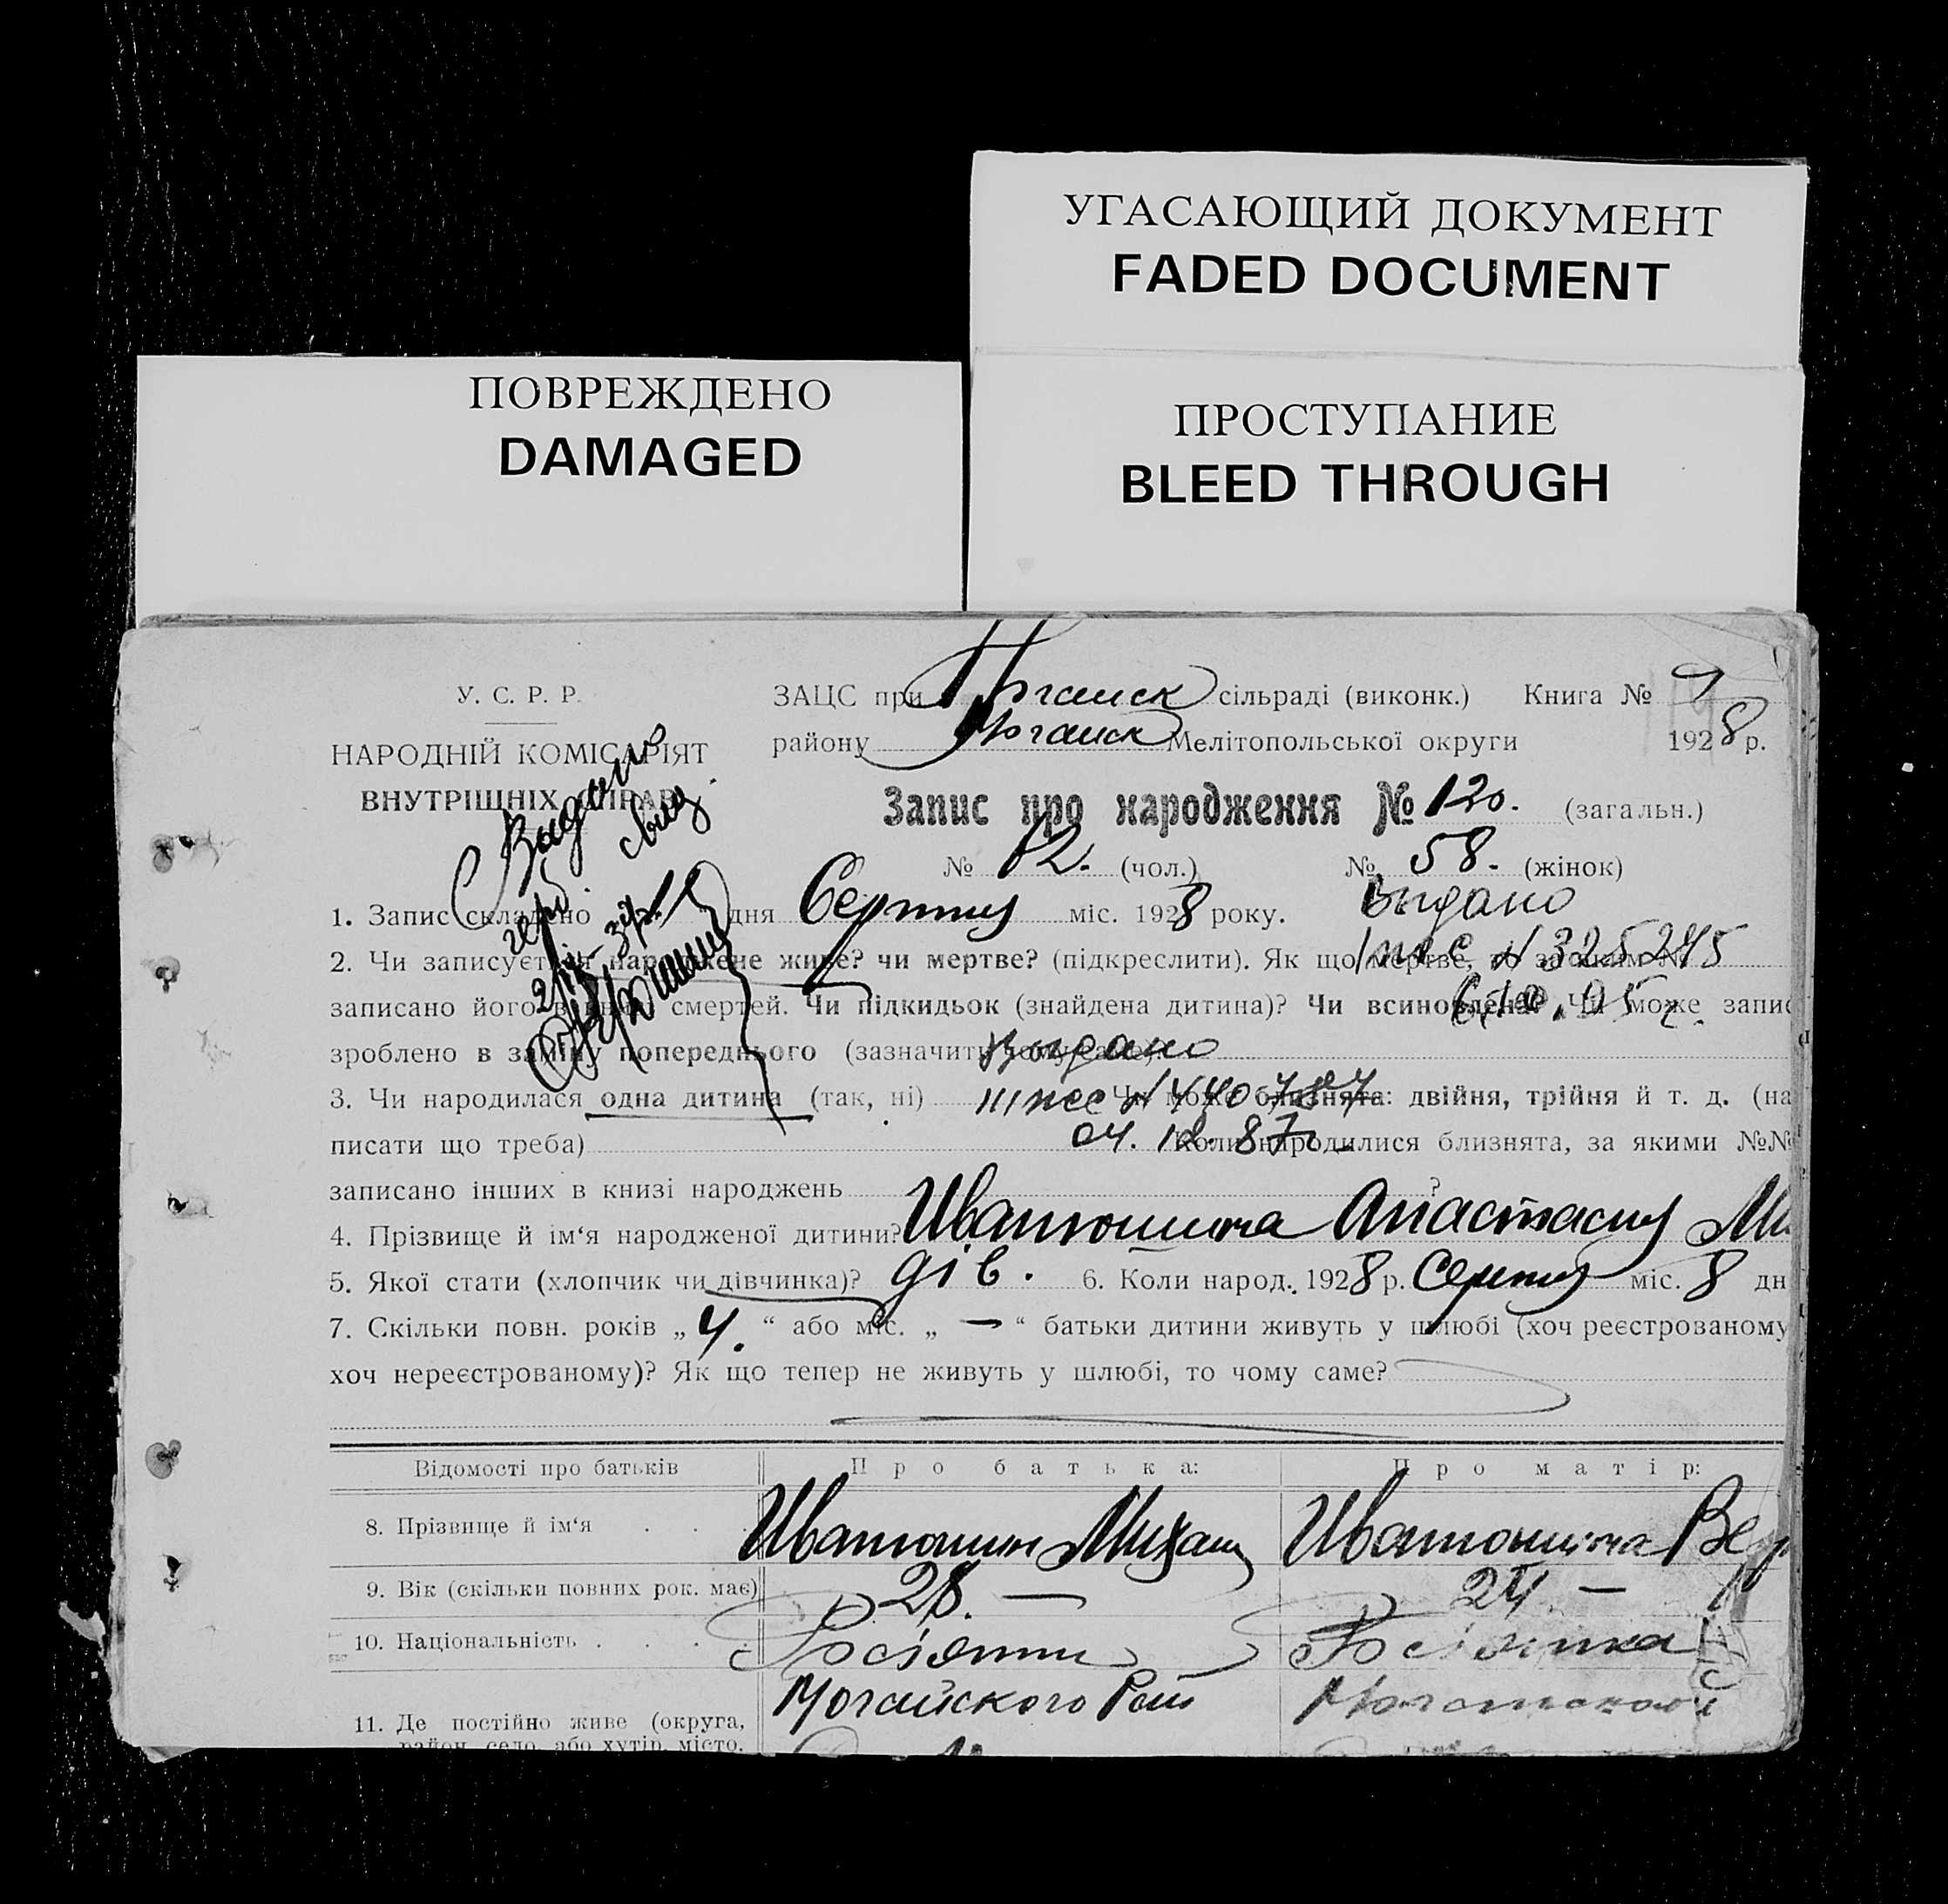 УГАСАЮЩИЙ ДОКУМЕНТ
FADED DOCUMENT
ПОВРЕЖДЕНО
DAMAGED
ПРОСТУПАНИЕ
BLEED THROUGH
У. С. Р. Р.
НАРОДНІЙ КОМІСАРІЯТ
ВНУТРІШНІХ СПРАВ
ЗАЦС при сільраді (виконк.) Книга №
району Мелітопольської округи 1928 р.
Запис про народження № 120. (загальн.)
№ 62. (чол.) № 58. (жінок)
1. Запис складено дня Серпня міс. 1928 року.
Выдано
№ 325245
2. Чи записується народжене живе? чи мертве? (підкреслити). Як що мертве, то за яким №
записано його в книзі смертей. Чи підкидьок (знайдена дитина)? Чи всиновлена? Чи може запис
зроблено в заміну попереднього (зазначити
Выдано
3. Чи народилася одна дитина (так, ні) Чи може близнята: двійня, трійня й т. д. (на
№ 440787
04. 12. 87
писати що треба) Коли народилися близнята, за якими №№
записано інших в книзі народжень ?
4. Прізвище й ім‘я народженої дитини? Иватюшина Анастасия Ми
5. Якої стати (хлопчик чи дівчинка)? дів. 6. Коли народ. 1928 р. Серпня міс. 8 дн
7. Скільки повн. років „ 4. “ або міс. „ — “ батьки дитини живуть у шлюбі (хоч реєстрованому
хоч нереєстрованому)? Як що тепер не живуть у шлюбі, то чому саме?
Відомості про батьків Про батька: Про матір:
8. Прізвище й ім‘я . . Иватюшин Михаил Иватюшина Вер
9. Вік (скільки повних рок. має) 28. — 24 —
10. Національність . . . . Росіянин Росіянка
11. Де постійно живе (округа, Ногайского Рай
район, село, або хутір, місто,